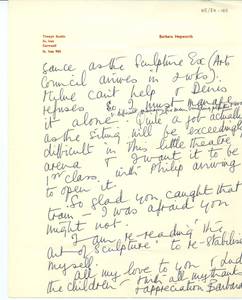 Trewyn Studio
St. Ives
Cornwall
Barbara Hepworth
dance as the Sculpture Ex (Arts
Council arrives in 2 wks).
can't help & Denis
refuses & I must
it alone. Quite a job actually
as the siting will be exceedingly
difficult in this little theatre
arena & I want it to be
1st class, with Philip arriving
to open it.
So glad you caught that
train – I was afraid you
might not.
I am re-reading "the
Art of Sculpture" to re-stabilise
myself.
all my love to you & and
the children – with all my thanks
& appreciation Barbara